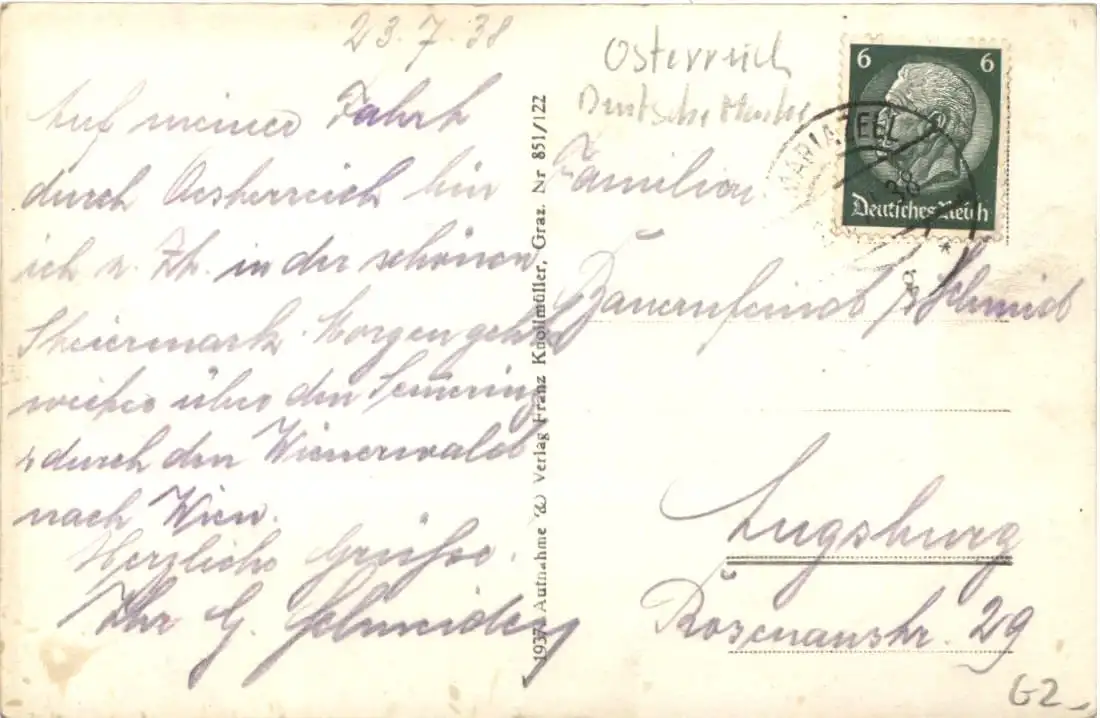 23.7.38
Auf meiner Fahrt
durch Oesterreich bin
ich z. Zt. in der schönen
Steiermark. Morgen geht's
weiter über den Semering
u. durch den Wienerwald
nach Wien.
Herzliche Grüsse.
Ihr G. Schneider
1937 Aufnahme u. Verlag Franz Knollmüller, Graz. Nr 851/122
Österreich
Deutsche Marke
6 6
Deutsches Reich
MARIAZELL
38
Familien
Bauernfeind / Schmid
Augsburg
Rosenaustr. 29
G2